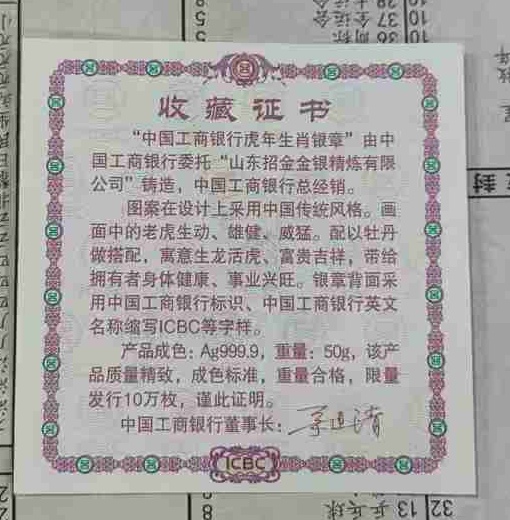 收藏证书
“中国工商银行虎年生肖银章”由中
国工商银行委托“山东招金金银精炼有限
公司”铸造，中国工商银行总经销。
图案在设计上采用中国传统风格。画
面中的老虎生动、雄健、威猛。配以牡丹
做搭配，寓意生龙活虎、富贵吉祥，带给
拥有者身体健康、事业兴旺。银章背面采
用中国工商银行标识、中国工商银行英文
名称缩写ICBC等字样。
产品成色：Ag999.9，重量：50g，该产
品质量精致，成色标准，重量合格，限量
发行10万枚，谨此证明。
中国工商银行董事长：
ICBC
32 13 乒乓球